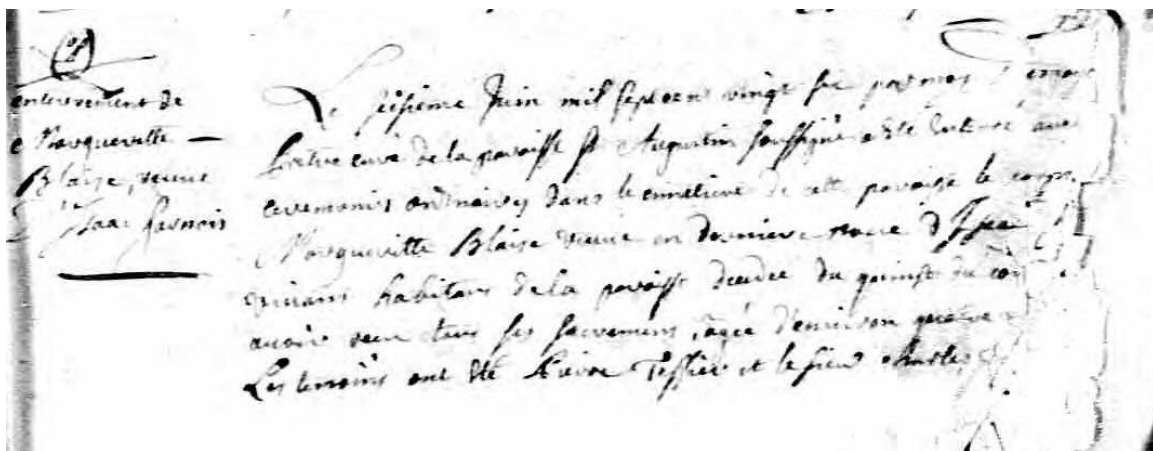 enterrement de
Margueritte
Blaise, veuve
Isaac Harnois
Le seisieme Juin mil sept cens vingt six par moy
Prêtre curé de la paroisse St Augustin soussigné a été enterré avec
ceremonies ordinaires dans le cimetiere de cette paroisse le corps
Marguerritte Blaise veuve en derniere noce d'Isaac
vivant habitant de la paroisse decedee du quinse du
avoir receu tous ses sacremens, agée d'environ quatre
Les temoins ont été Pierre Tessier et le sieur